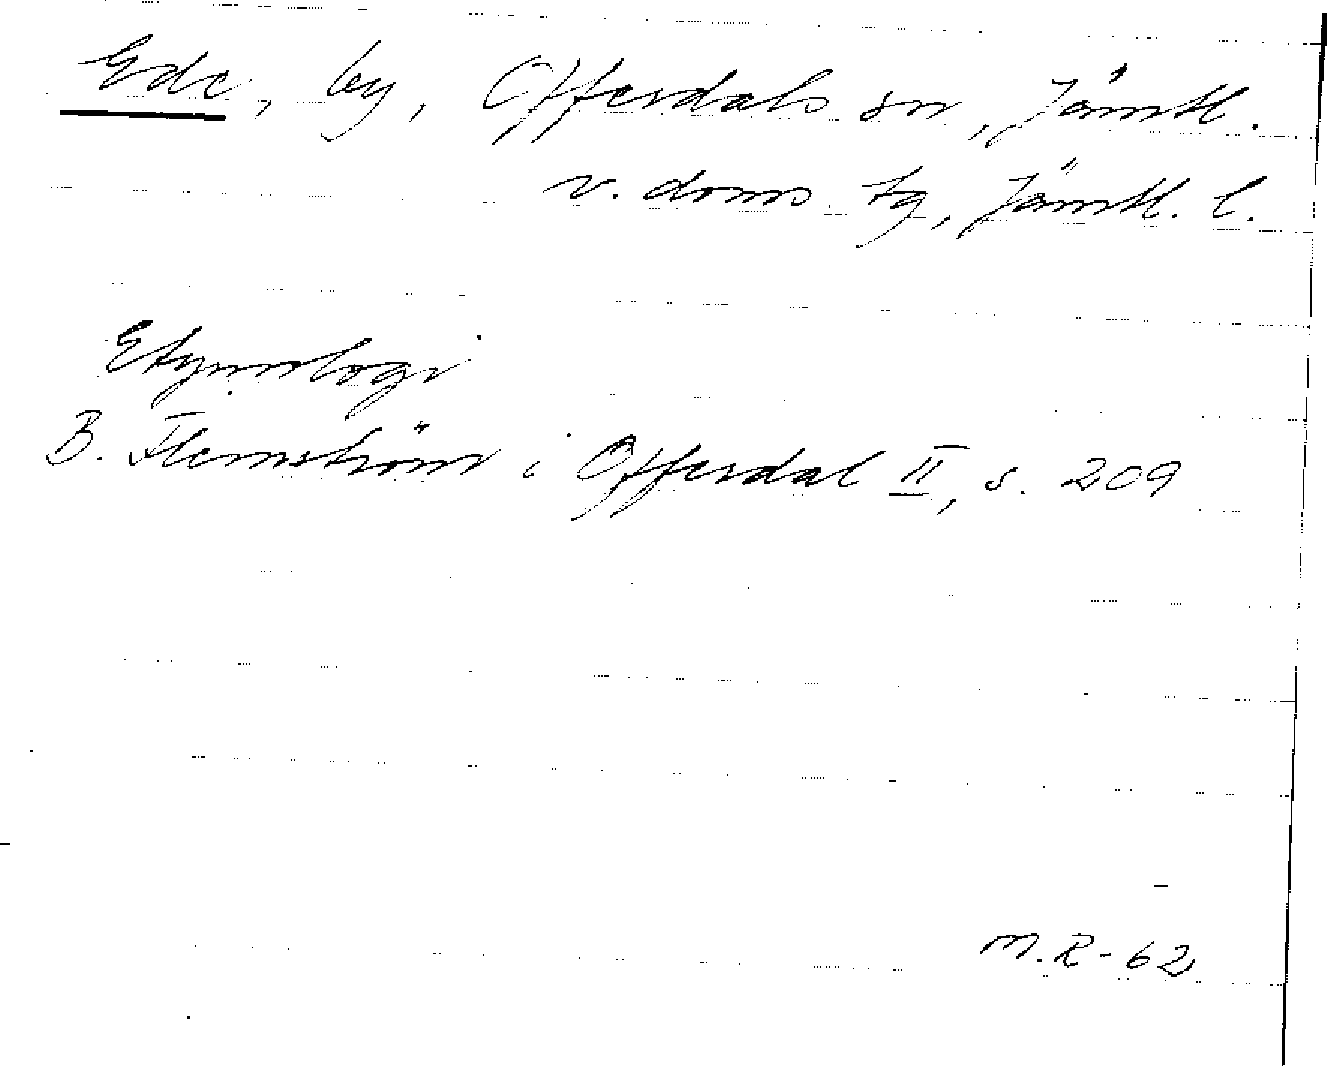 Ede, by, Offerdals sn, Jämtl.
v. doms tg, Jämtl. l.
Etymologi
B. Flemström i Offerdal II, s. 209
M.R-62